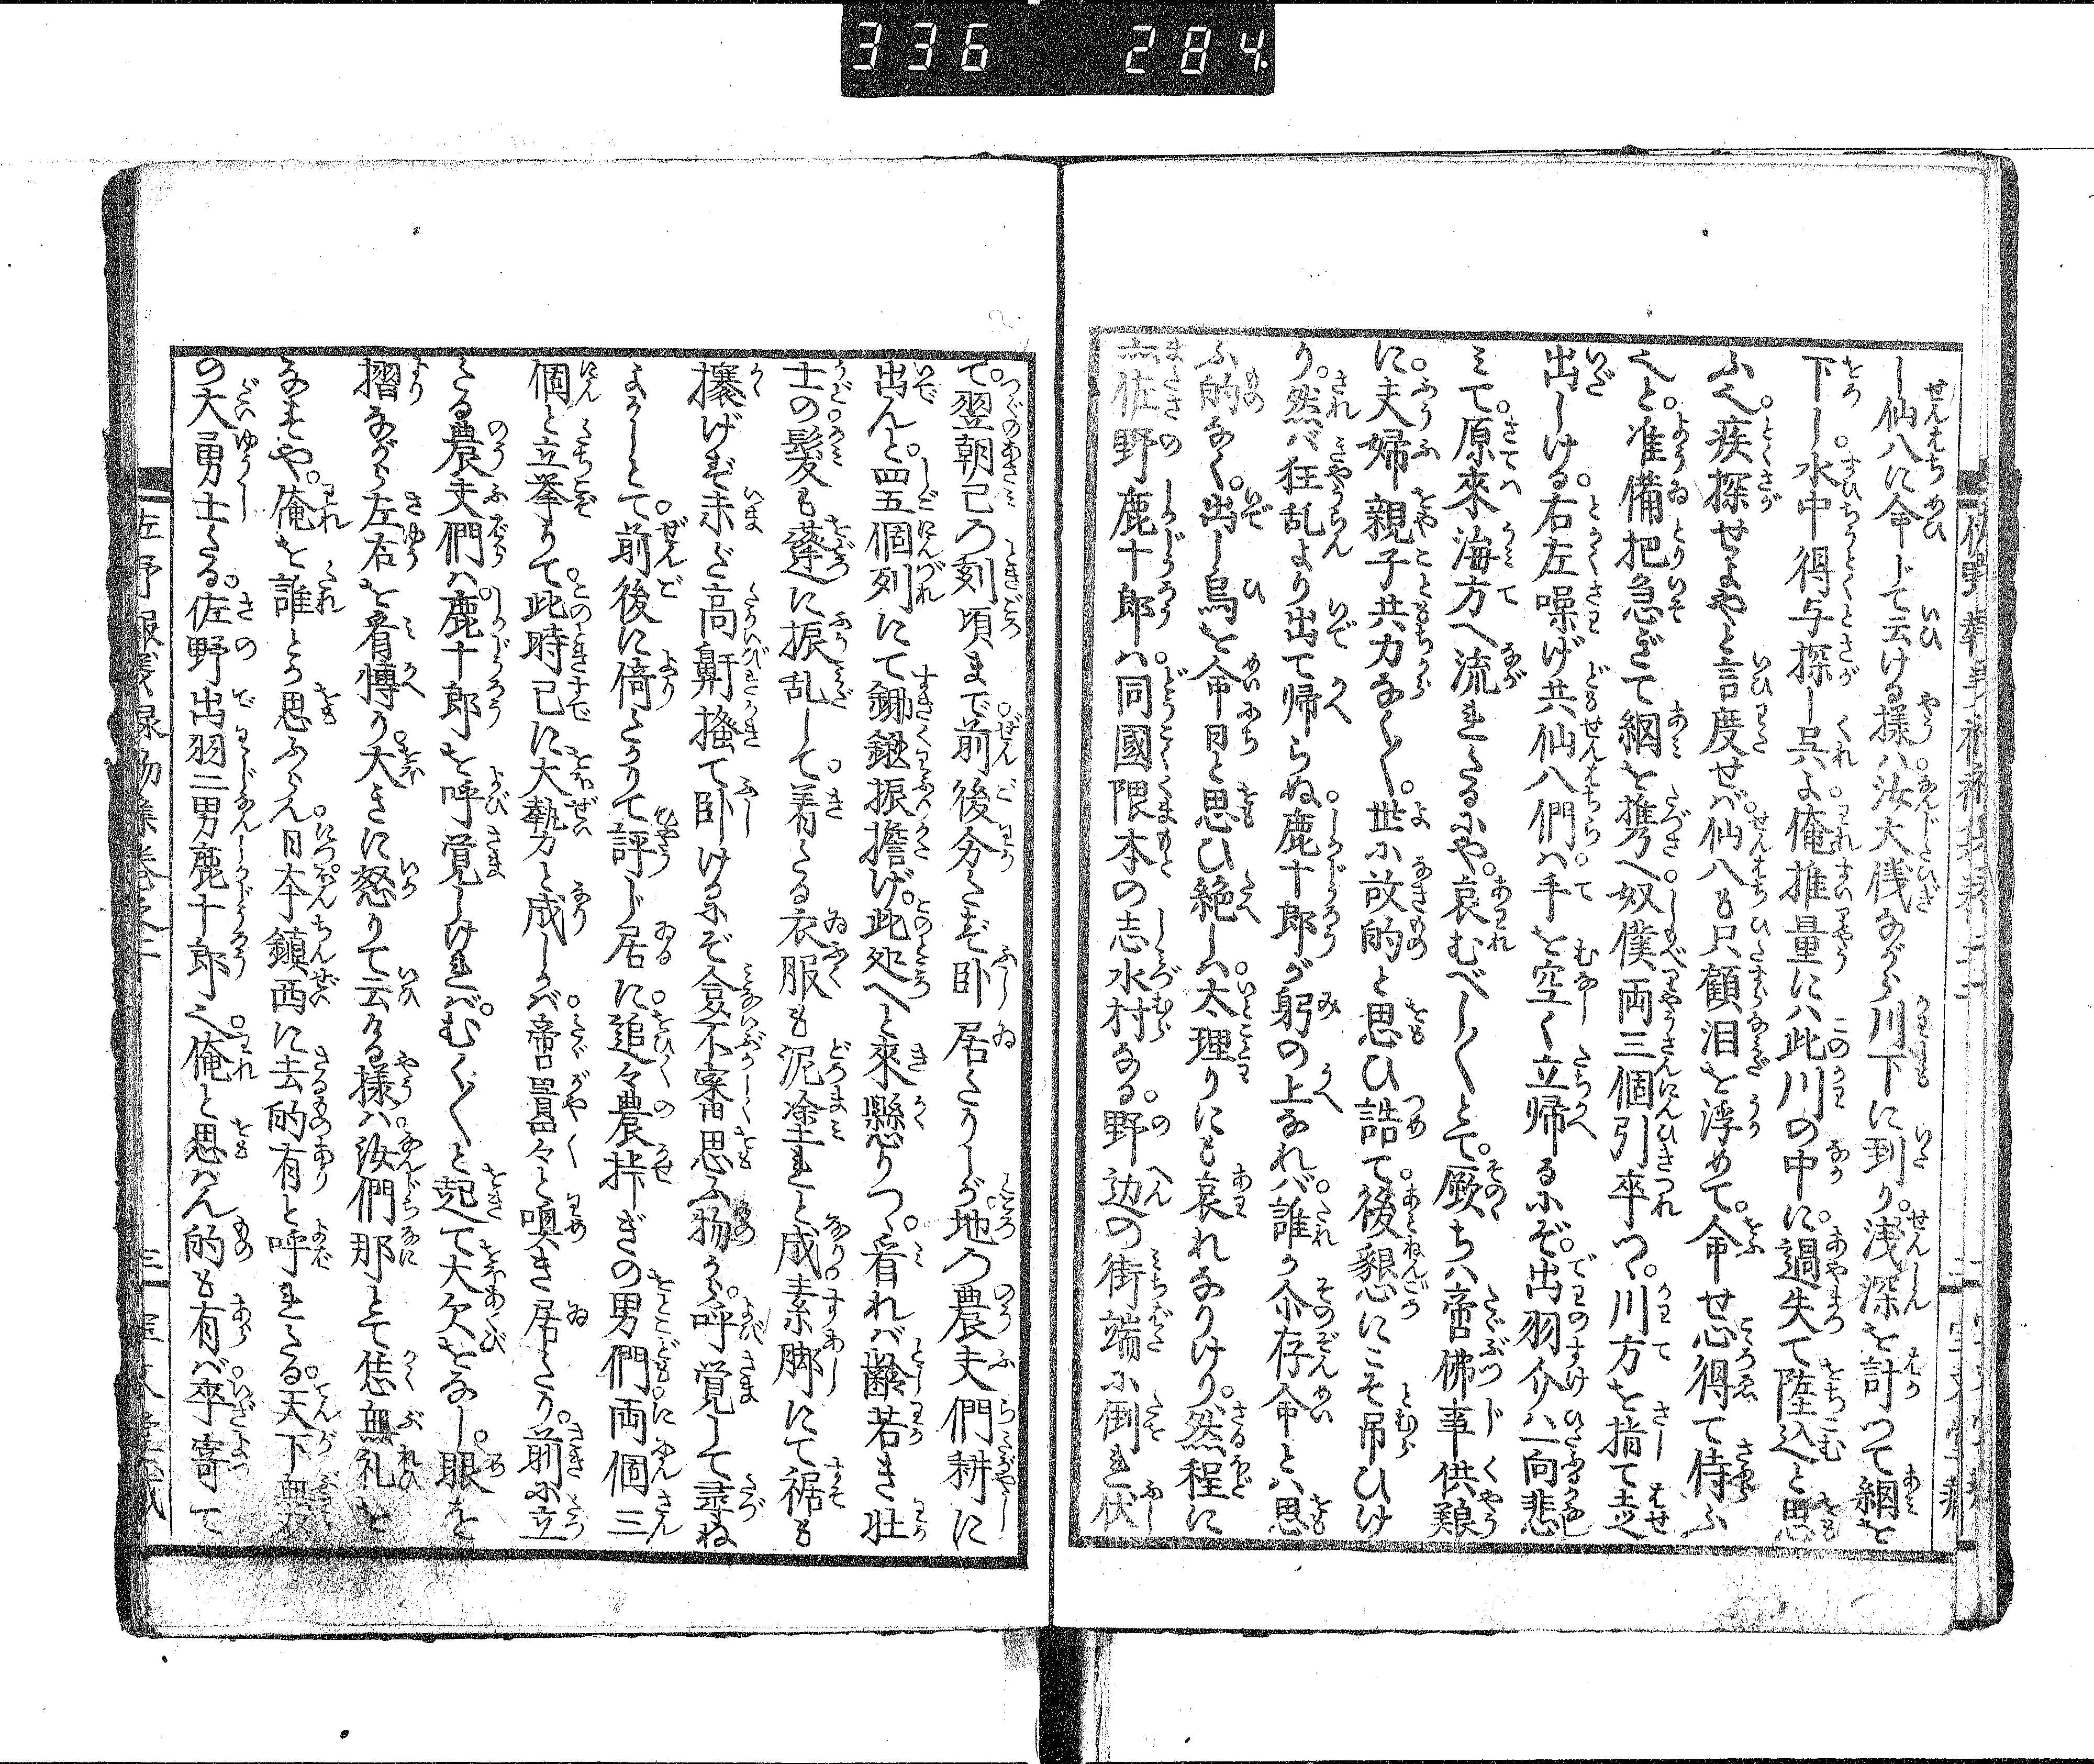 336 284.
し仙八に命じて云ける様ハ汝大儀ながら川下に到り。浅深を計つて網を
下し。水中得与探し呉よ俺推量にハ此川の中に。過失て陸込と思
ふ也。疾探せよやと言度せバ。仙八も只顧泪を浮めて。命せ心得て侍ふ
也と。准備把急ぎて網を携へ。奴僕両三個引卒つゝ。川方を指て走
出しける。右左噪げ共仙八們ハ。手を空く立帰るにぞ。出羽介ハ一向悲
ミて。原來海方へ流れたるにや。哀むべし〱とて。厥ちハ啻佛事供難
に。夫婦親子共力なく〱。世に故的と思ひ詰て。後懇にこそ吊ひけ
り。然バ狂乱より出て帰らぬ。鹿十郎が躬の上なれバ。誰か介存命とハ思
ふ的なく。出し烏を命日と思ひ絶しハ。太理りにも哀れなりけり。然程に
佐野鹿十郎ハ。同國隈本の志水村なる。野辺の街端に倒れ伏
て。翌朝巳の刻頃まで。前後分たず臥居たりしが。地の農夫們耕に
出んと。四五個列にて鋤鍬振擔げ。此処へと來懸りつゝ。看れバ齢若き壮
士の髪も蓬に振乱して。着たる衣服も泥塗れと成。素脚にて裾も
攘げず。未だ高鼾搔て臥けるにぞ。僉不審思ふ物から。呼覚して尋ね
よかしとて。前後に倚たかりて評じ居に。追々農挊ぎの男們。両個三
個と立挙りて。此時已に大勢と成しかバ。啻囂々と嗅き居たり。前に立
たる農夫們ハ。鹿十郎を呼覚しけれバ。むく〱と起て大欠をなし。眼を
摺ながら左右を看愽り。大きに怒りて云ける様ハ。汝們那とて恁無礼を
なすや。俺を誰とか思ふらん。日本鎮西に去的有と呼れたる。天下無双
の大勇士たる。佐野出羽二男鹿十郎也。俺と思ハん的も有バ。卒寄て